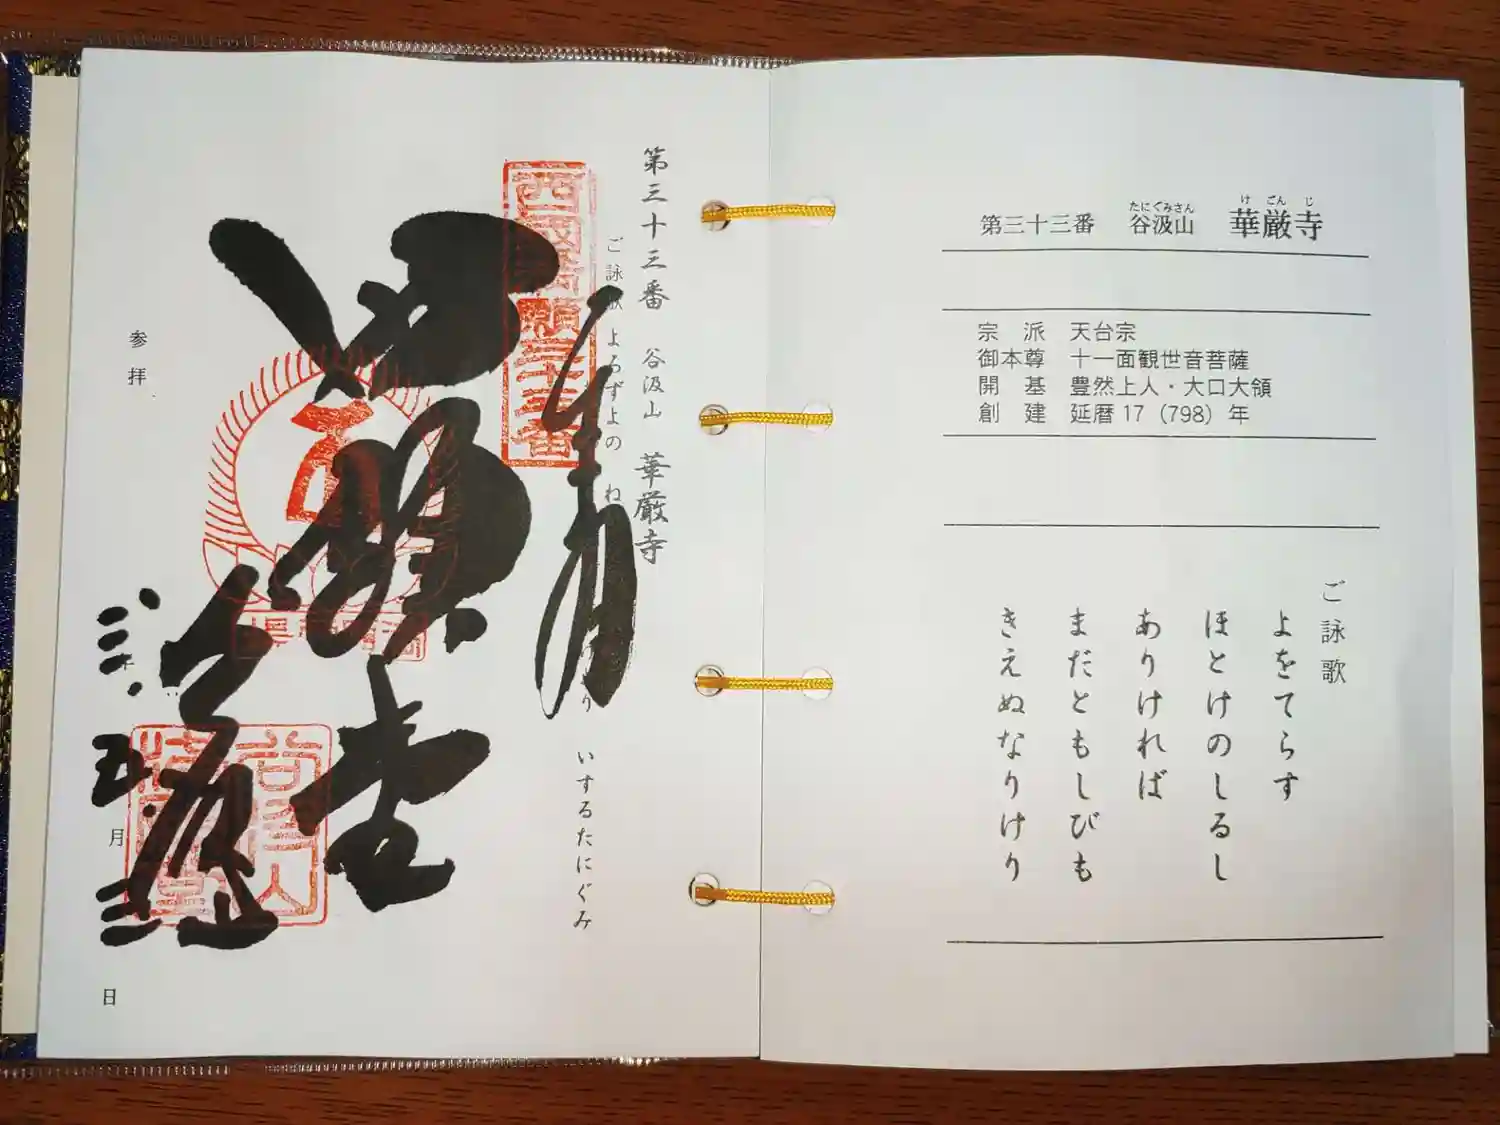 第三十三番 谷汲山 華厳寺
たにぐみさん け ごん じ
宗 派 天台宗
御本尊 十一面観世音菩薩
開 基 豊然上人・大口大領
創 建 延暦17（798）年
ご詠歌
よをてらす
ほとけのしるし
ありければ
まだともしびも
きえぬなりけり
第三十三番 谷汲山 華厳寺
ご詠歌 よろずよの ね いするたにぐみ
西国満願三十三番
満願堂
参拝
三 年 五 月 三 日